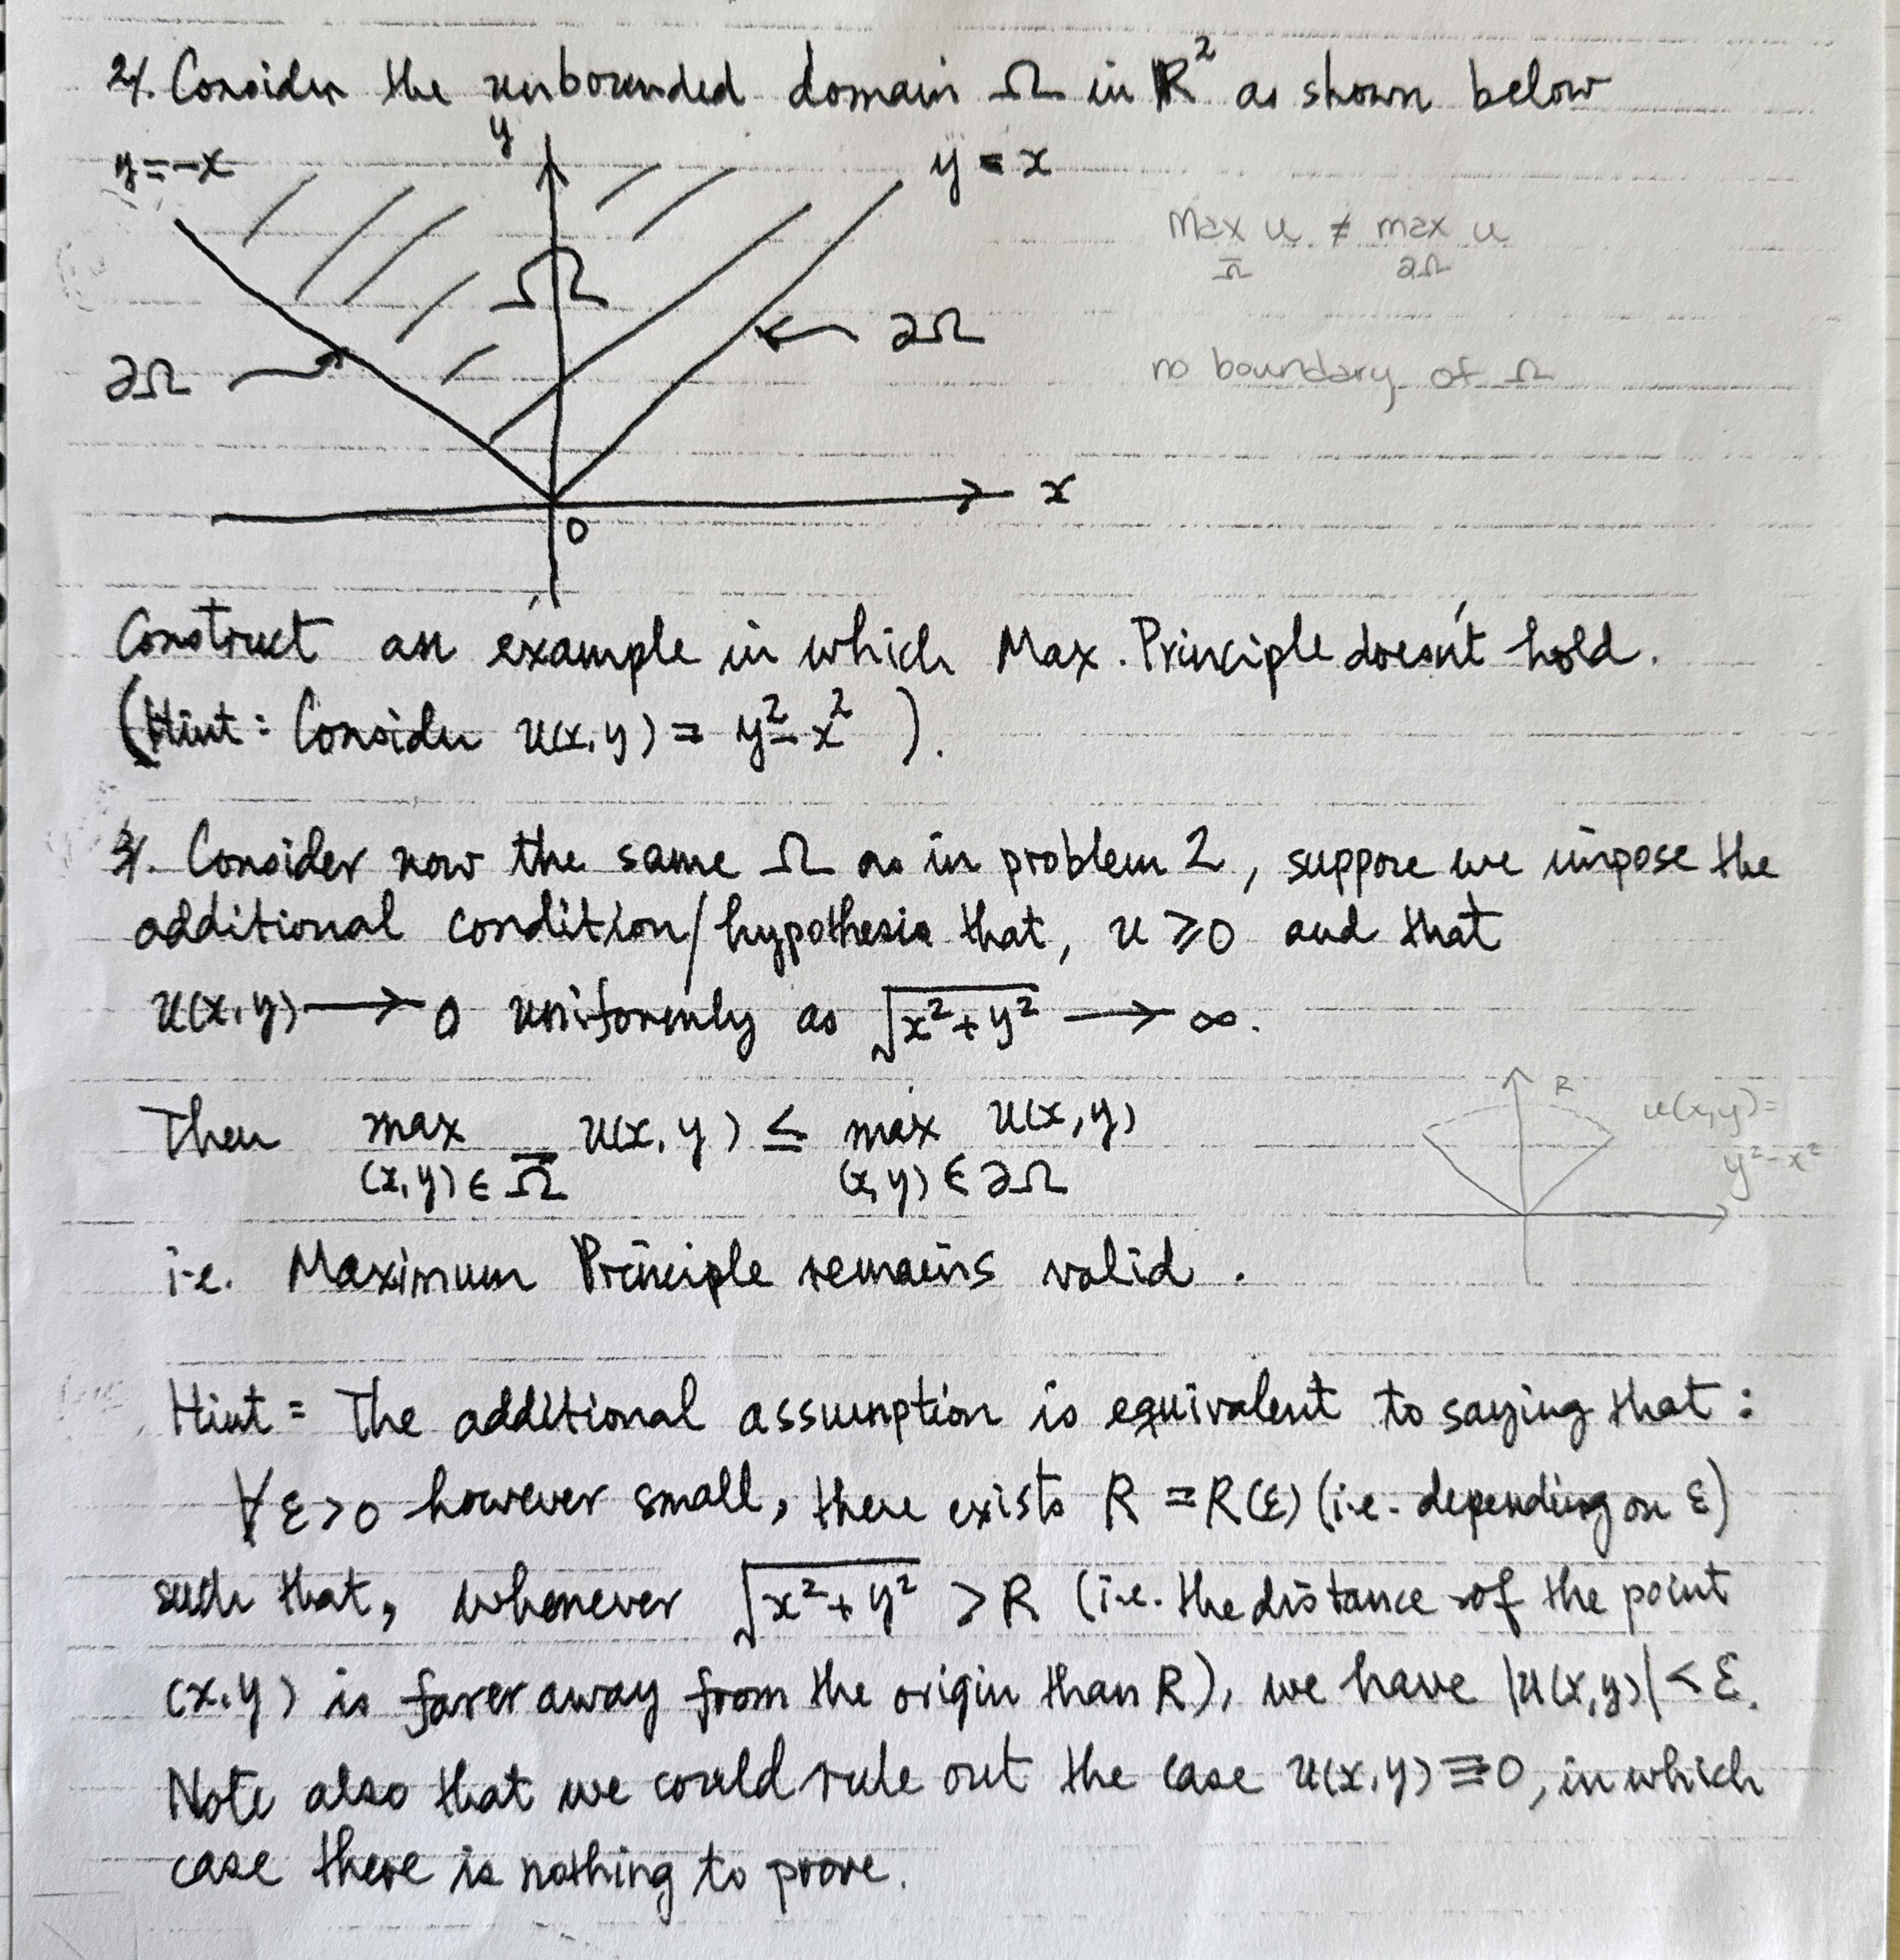 2. Consider the unbounded domain Ω in R² as shown below
y
y=-x
y = x
Max u ≠ max u
Ω̅ ∂Ω
Ω
∂Ω
∂Ω
no boundary of Ω
x
0
Construct an example in which Max. Principle doesn't hold.
(Hint: Consider u(x,y) = y²-x² ).
3. Consider now the same Ω as in problem 2, suppose we impose the
additional condition/hypothesis that, u ≥ 0 and that
u(x,y) → 0 uniformly as √x²+y² → ∞.
Then max u(x,y) ≤ max u(x,y)
(x,y) ∈ Ω̅ (x,y) ∈ ∂Ω
R
u(x,y)=
y²-x²
i.e. Maximum Principle remains valid.
Hint = The additional assumption is equivalent to saying that:
∀ε>0 however small, there exists R = R(ε) (i.e. depending on ε)
such that, whenever √x²+y² > R (i.e. the distance of the point
(x,y) is farer away from the origin than R), we have |u(x,y)| < ε.
Note also that we could rule out the case u(x,y) ≡ 0, in which
case there is nothing to prove.